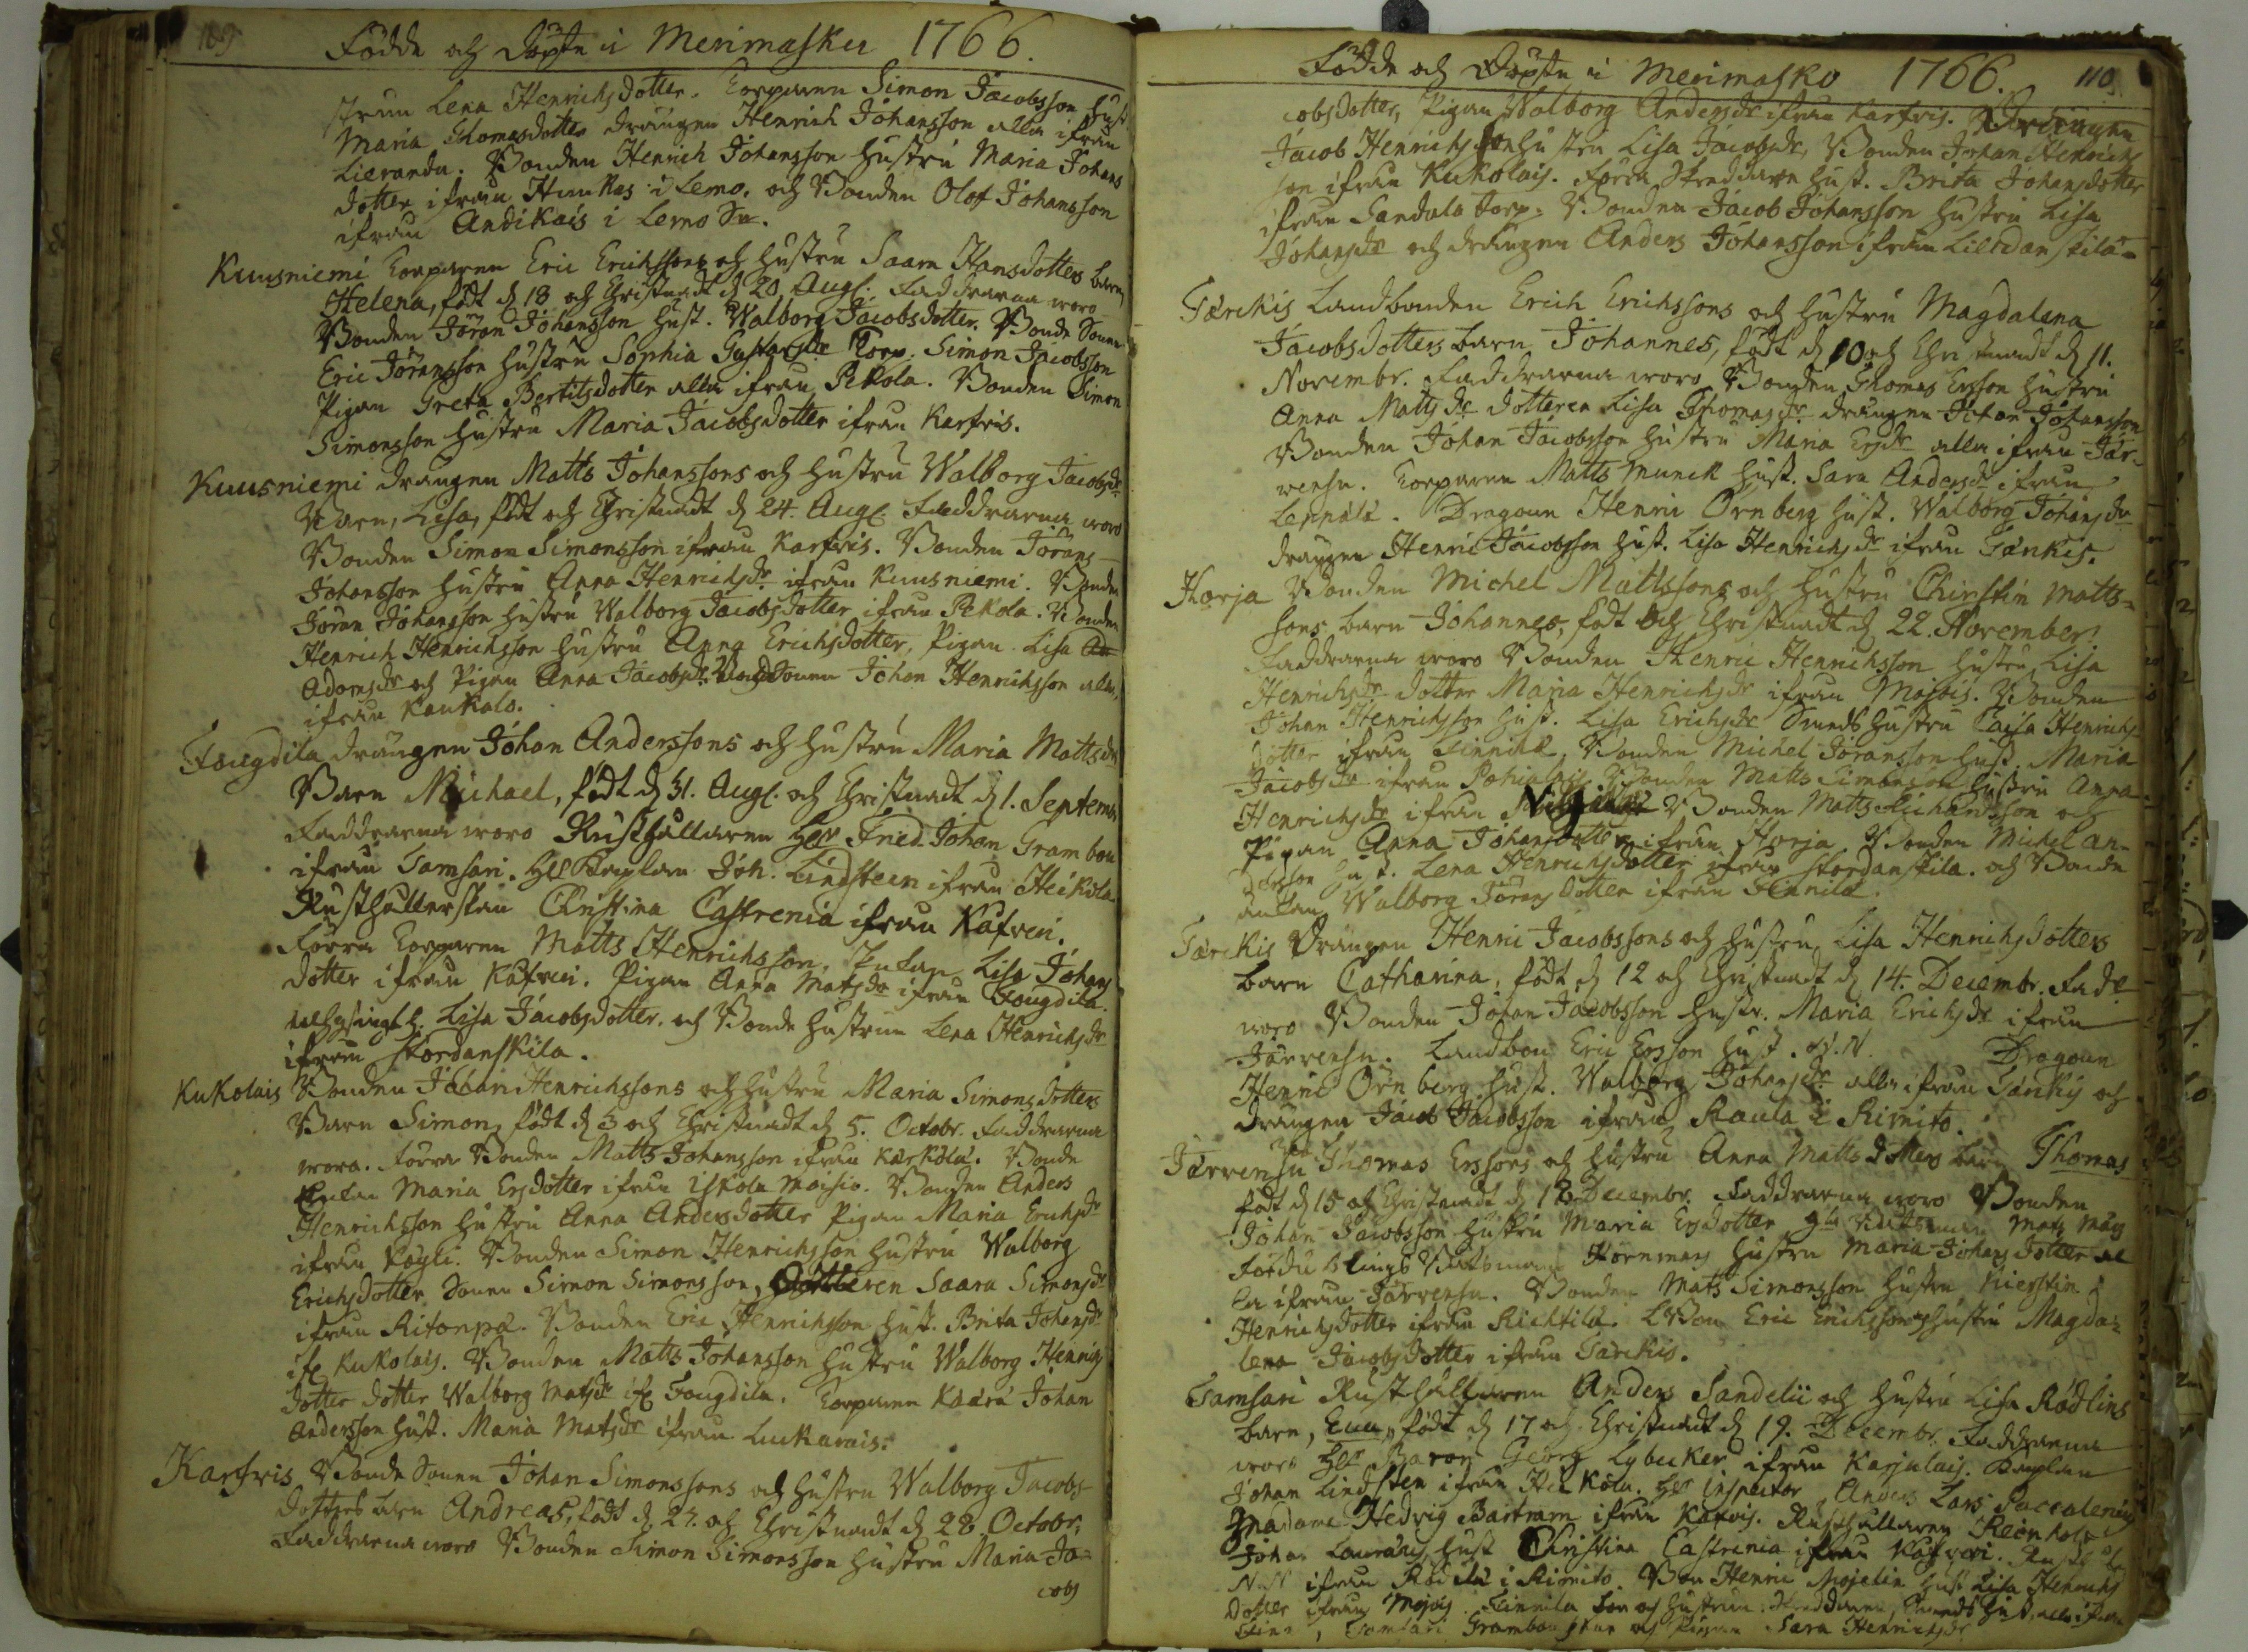 109
Födde och Döpte i Merimasku 1766.
strun Lena Henrichsdotter. Torparen Simon Jacobsson Hust
Maria Thomasdotter drängen Henrich Johansson alla ifrån
Lieranda. Bonden Henrich Johansson hustru Maria Johans
dotter ifrån Humkas i Lemo. och Bonden Olof Johansson
ifrån Andikais i Lemo Sn.
Kuusniemi Torparen Eric Erichssons och hustru Saara Hansdotters barn,
Helena, född d 18 och Christnadt d 20 Aug. Faddrarna woro
Bonden Jöran Johansson Hust. Walborg Jacobsdotter. Bonde Sonen
Eric Jöransson hustru Sophia Gustafsdr Torp. Simon Jacobsson
Pigan Greta Bertilsdotter alla ifrån Pekola. Bonden Simon
Simonsson hustru Maria Jacobsdotter ifrån Karfvis.
Kuusniemi drängen Matts Johanssons och hustru Walborg Jacobsdr
Barn, Lisa, födt och Christnadt d 24. Aug. Faddrarna woro
Bonden Simon Simonsson ifrån Karfvis. Bonden Jörans
Johansson hustru Anna Henrichsdr ifrån Kuusniemi. Bonden
Jöran Johansson hustru Walborg Jacobsdotter ifrån Pekola. Bonden
Henrich Henrichsson hustru Anna Erichsdotter, Pigan Lisa
Adamsdr och Pigan Anna Jacobsdr. Bondsonen Johan Henrichsson alla,
ifrån Kaukolo.
Fougdila drängen Johan Anderssons och hustru Maria Mattsdr
Barn Michael, födt d 31. Aug. och Christnadt d 1. Septembr
Faddrarna woro Rusthållaren Hr Fried. Johan Grambou
ifrån Tamsari. Hr Caplan Joh. Lindsteen ifrån Heikola
Rusthållerskan Christina Castrenia ifrån Kafvri.
Förra Torparen Matts Henrichsson, Enkan Lisa Johans
dotter ifrån Kafvri. Pigan Anna Matsdr ifrån Fougdila.
Lisa Jacobsdotter. och Bonde hustrun Lena Henrichsdr
ifrån Stordanskila.
Kukolais Bonden Johan Henrichssons och hustru Maria Simonsdotters
Barn Simon, födt d 3 och Christnadt d 5. Octobr. Faddrarna
woro. Förra Bonden Matts Johansson ifrån Karkola. Bonde
Enkan Maria Ersdotter ifrån Iskola Moisio. Bonden Anders
Henrichsson hustru Anna Andersdotter Pigan Maria Erichsdr
ifrån Köyli. Bonden Simon Henrichsson hustru Walborg
Erichsdotter Sonen Simon Simonsson, Dotteren Saara Simonsdr
ifrån Ritonpä. Bonden Eric Henrichsson Hust. Brita Johansdr
ifr. Kukolais. Bonden Matts Johansson hustru Walborg Henrichs
dotter dotter Walborg Matsdr ifr. Fougdila. Torparen Kaära Johan
Andersson Hust. Maria Matsdr ifrån Luckarais.
Karfvis Bonde Sonen Johan Simonssons och hustru Walborg Jacobs-
dotters barn Andreas, födt d. 27. och Christnadt d 28 Octobr.
Faddrarna woro Bonden Simon Simonsson hustru Maria Ja-
cobs
Födde och Döpte i Merimasko 1766. 110
cobsdotter, Pigan Walborg Andersdr ifrån Karfvis. Drängen
Jacob Henrichsson hustru Lisa Jacobsdr, Bonden Johan Henrichs
son ifrån Kukolais. Förra Skreddare Hust. Brita Johansdotter
ifrån Sandala Torp. Bonden Jacob Johansson hustru Lisa
Johansdr och drängen Anders Johansson ifrån Lilldanskila.
Tarckis Landbonden Erich Erichssons och hustru Magdalena
Jacobsdotters barn Johannes, födt d 10 och Christnadt d 11.
Novembr. Faddrarna woro Bonden Thomas Ersson hustru
Anna Mattsdr dotteren Lisa Thomasdr drängen Johan Johansson
Bonden Johan Jacobsson hustru Maria Ersdr alla ifrån Jär-
rensu. Torparen Matts Munck Hust. Sara Andersdr ifrån
Lempälä. Dragoun Henric Örnberg Hust. Walborg Johansdr
drängen Henric Jacobsson Hust. Lisa Henrichsdr ifrån Tankis.
Harja Bonden Michel Mattssons och hustru Chirstin Matts-
sons barn Johannes, födt och Christnadt d 22. November.
Faddrarna woro Bonden Henric Henrichsson hustru Lisa
Henrichsdr dotter Maria Henrichsdr ifrån Moisis. Bonden
Johan Henrichsson Hust. Lisa Erichsdr Smeds hustru Caisa Henrichs
dotter ifrån Finnilä. Bonden Michel Jöransson Hust. Maria
Jacobsdr ifrån Pohialais. Bonden Matts Simonsson hustru Anna
Henrichsdr ifrån Bonden Matts Michaelsson och
Pigan Anna Johansdotter ifrån Harja. Bonden Michel An-
dersson Hust. Lena Henrichsdotter ifrån Stordanskila. och Bonde
enkan Walborg Jöransdotter ifrån Hannilä.
Tarckis Drängen Henric Jacobssons och hustru Lisa Henrichsdotters
barn Catharina, födt d 12 och Christnadt d 14. Decembr. Fadd.
woro Bonden Johan Jacobsson hustr. Maria Erichsdr ifrån
Järrensu. Landbon Eric Ersson Hust. N.N. Dragoun
Henric Örnberg Hust. Walborg Johansdr alla ifrån Tankis och
drängen Jacob Jacobsson ifrån Raula i Rimito.
Järrensu Thomas Erssons och hustru Anna Mattsdotters barn Thomas
födt d 15 och Christnadt d 18 Decembr. Faddrarna woro Bonden
Johan Jacobsson hustru Maria Ersdotter Mats
Båtsman Hörnman hustru Maria Johansdotter al
la ifrån Järrensu. Bonden Mats Simonsson hustru Kierstin
Henrichsdotter ifrån Richtilä. LBon Eric Erichsson och hustru Magda-
lena Jacobsdotter ifrån Tarckis.
Tamsari Rusthållaren Anders Sandelii och hustru Lisa Rödlins
barn, Eva, födt d 17 och Christnadt d 19. Decembr. Faddrarna
woro Hr Baron Georg Lybecker ifrån Karjulais. Caplan
Johan Lindsten ifrån Heikola. Hr Inspector Anders Lars Paccalenius
Madame Hedvig Bartram ifrån Kafvis. Rusthållaren Reinhold
Johan Lauræus, Hust Christina Castrenia ifrån Kafvri.
N.N ifrån i Rimito. Bon Henric Mojelin Hust Lisa Henrichs
dotter ifrån Moisis. Finnila
Tamsari Grambou och Pigan Sara Henrichsdr